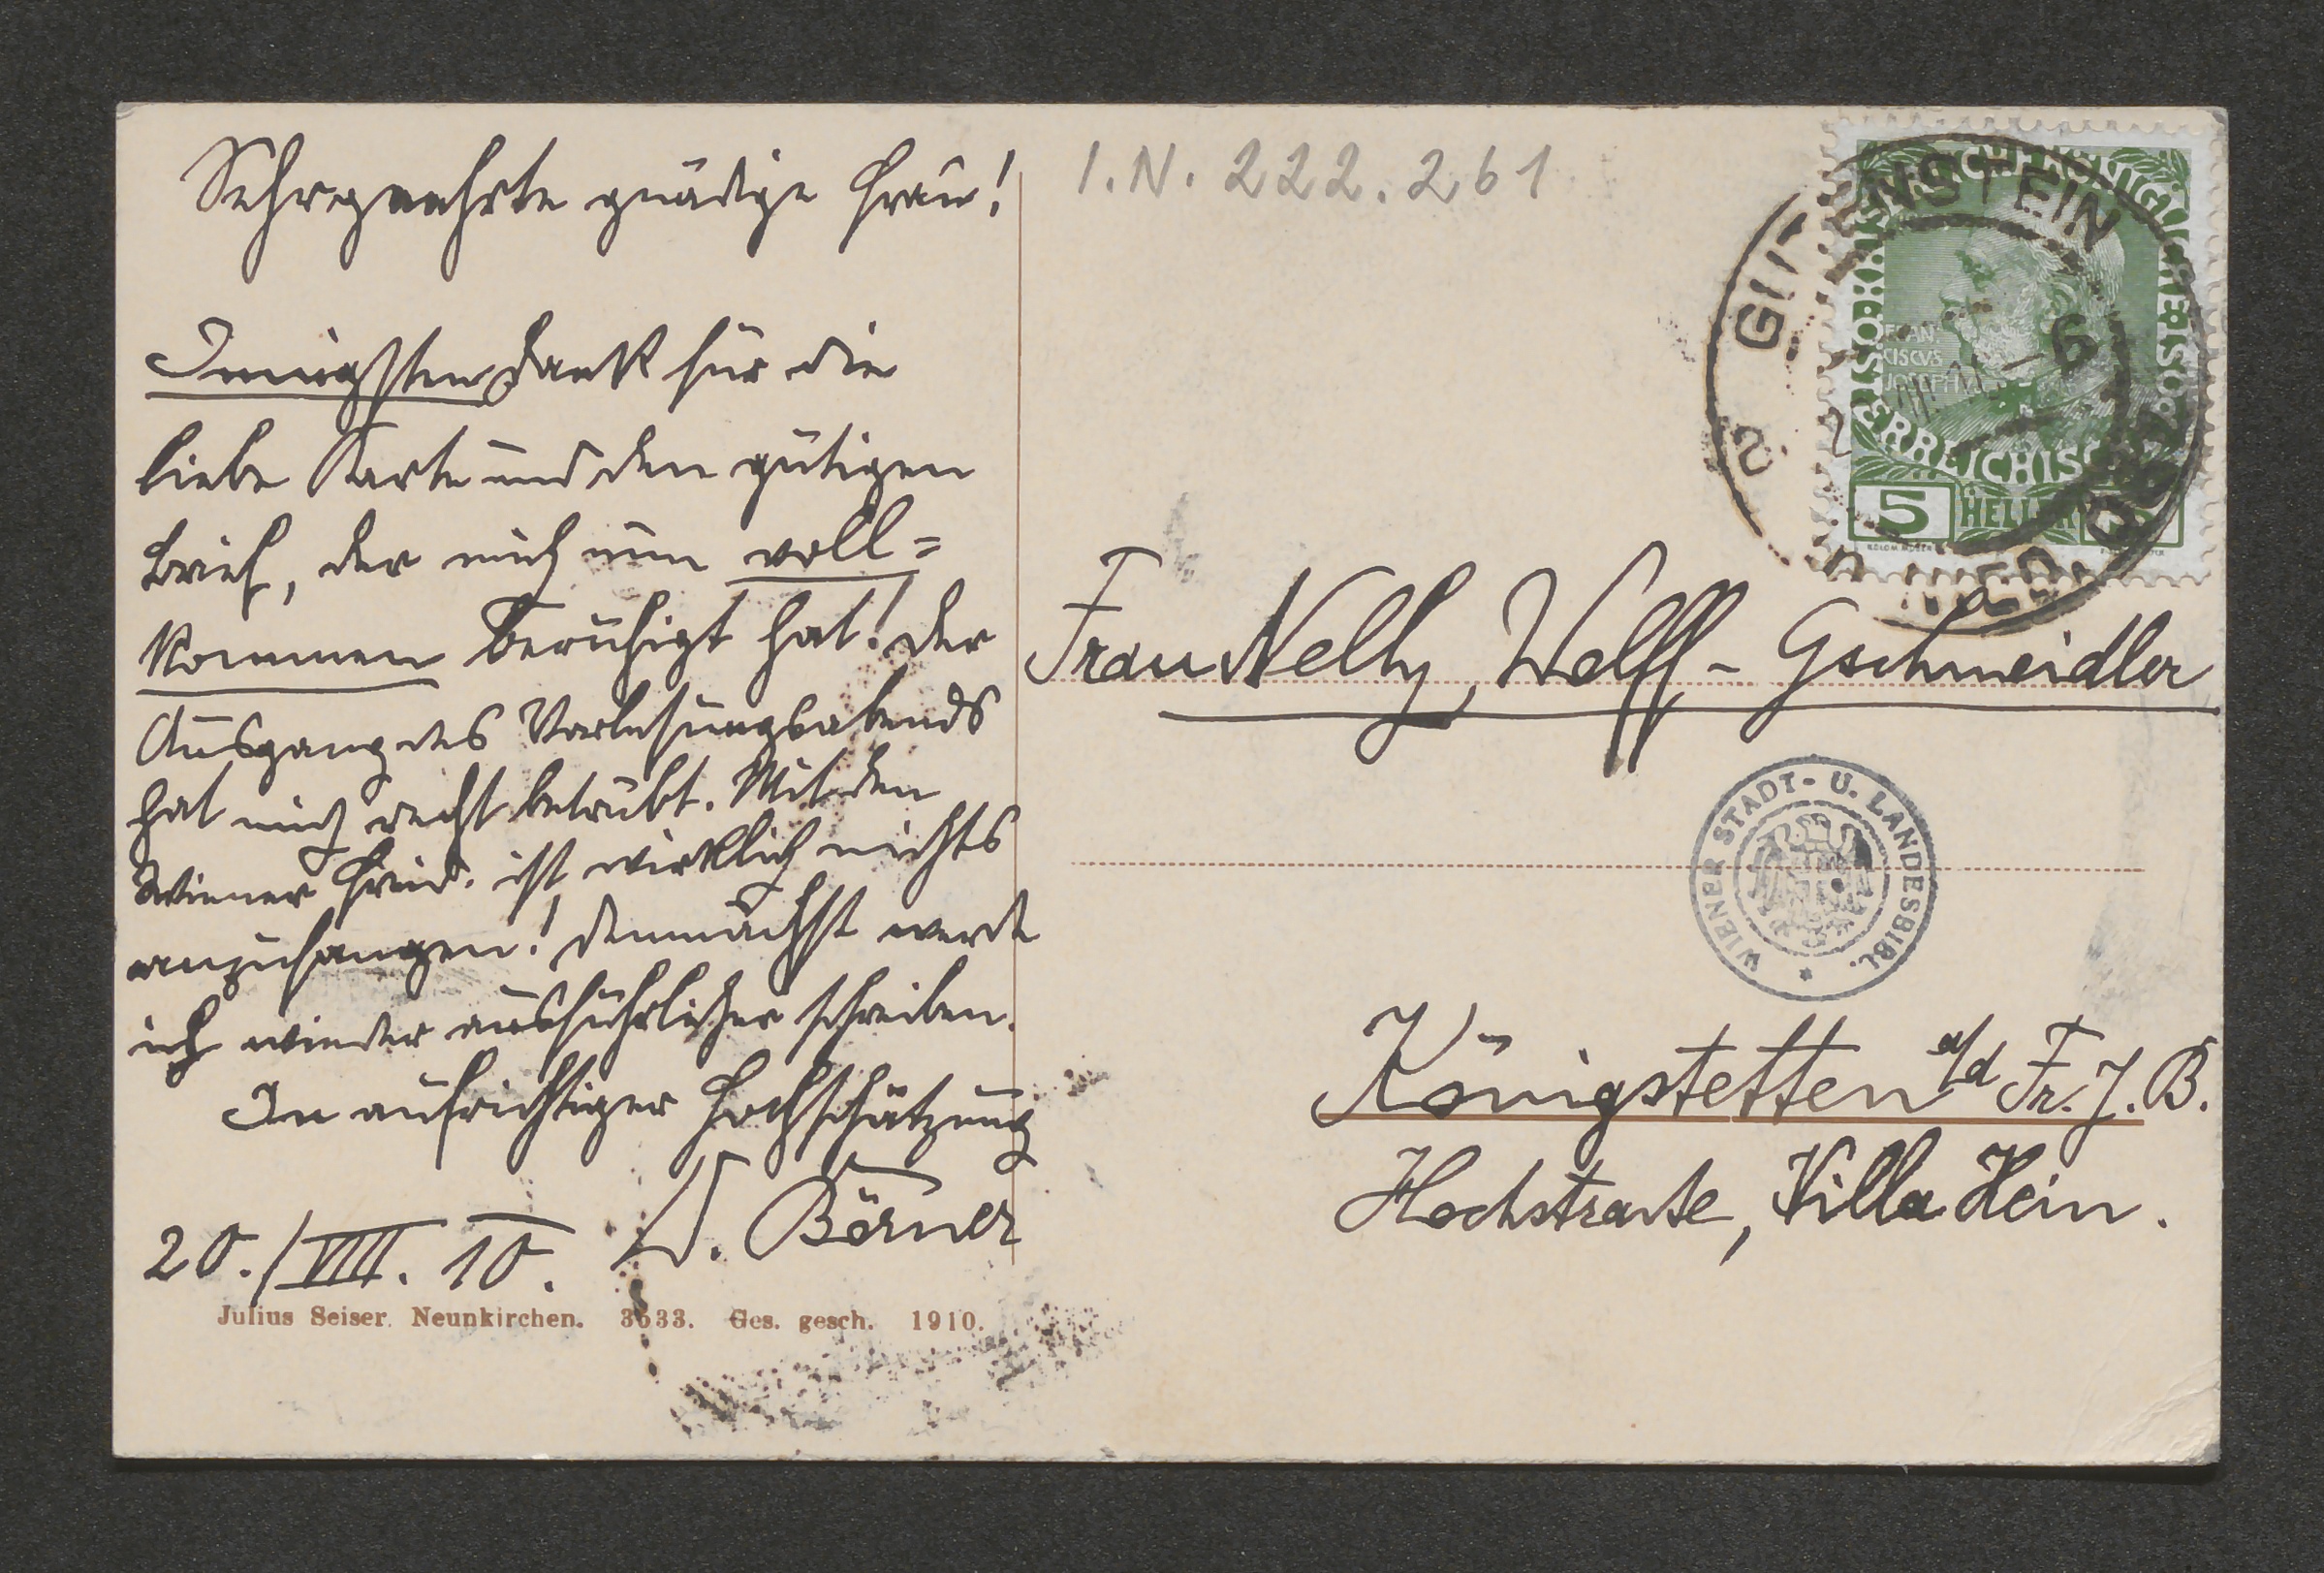 Sehrgeehrte gnädige Frau!
Innigsten Dank für die
liebe Karte und den gütigen
Brief, der mich nun voll=
kommen beruhigt hat! Der
Ausgang des Vorlesungsabends
hat mich recht betrübt. Mit den
Wiener ist wirklich nichts
anzufangen! Demnächst werde
ich wieder ausführlicher schreiben.
In aufrichtiger Hochschätzung
W. Börner
20./VIII. 10.
Julius Seiser, Neunkirchen. 3633. Ges. gesch. 1910.
I.N. 222.261
GUTENSTEIN
KAISERLICHE KÖNIGLICHE ÖSTERREICHISCHE POST
FRAN
CISCVS
JOSEPH
5 HELLER 5
Frau Nelly Wolff-Gschmeidler
WIENER STADT- U. LANDESBIBL.
Königstetten a/d Fr. J. B.
Hochstraße, Villa Hein.